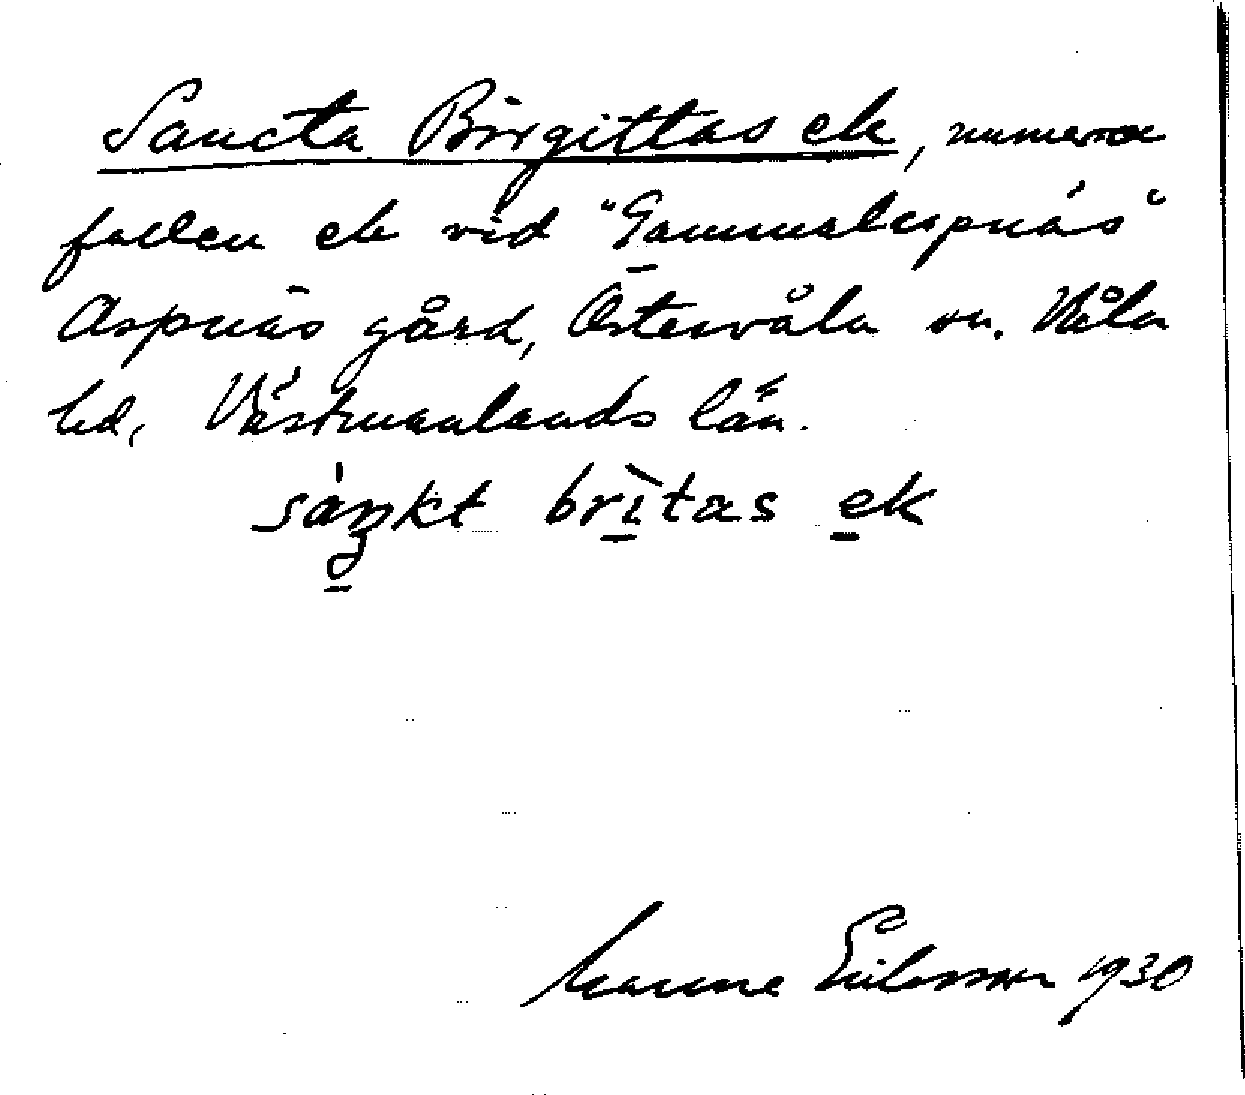 Sancta Birgittas ek, numera
fallen ek vid "Gammelaspnäs"
Aspnäs gård, Östervåla sn. Våla
hd, Västmanlands län.
sáŋkt brìtas ek
Manne Eriksson 1930